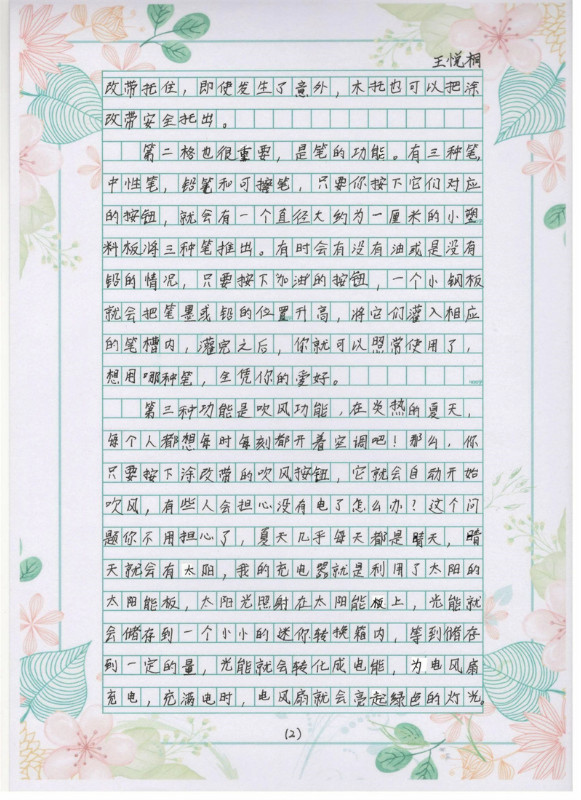 王悦桐
改带托住，即使发生了意外，木托也可以把涂
改带安全托出。
第二格也很重要，是笔的功能。有三种笔，
中性笔，铅笔和可擦笔，只要你按下它们对应
的按钮，就会有一个直径大约为一厘米的小塑
料板将三种笔推出。有时会有没有油或是没有
铅的情况，只要按下“加油”的按钮，一个小钢板
就会把笔墨或铅的位置升高，将它们灌入相应
的笔槽内，灌完之后，你就可以照常使用了，
想用哪种笔，全凭你的爱好。
第三种功能是吹风功能，在炎热的夏天，
每个人都想每时每刻都开着空调吧！那么，你
只要按下涂改带的吹风按钮，它就会自动开始
吹风，有些人会担心没有电了怎么办？这个问
题你不用担心了，夏天几乎每天都是晴天，晴
天就会有太阳，我的充电器就是利用了太阳的
太阳能板，太阳光照射在太阳能板上，光能就
会储存到一个小小的迷你转换箱内，等到储存
到一定的量，光能就会转化成电能，为电风扇
充电，充满电时，电风扇就会亮起绿色的灯光。
(2)